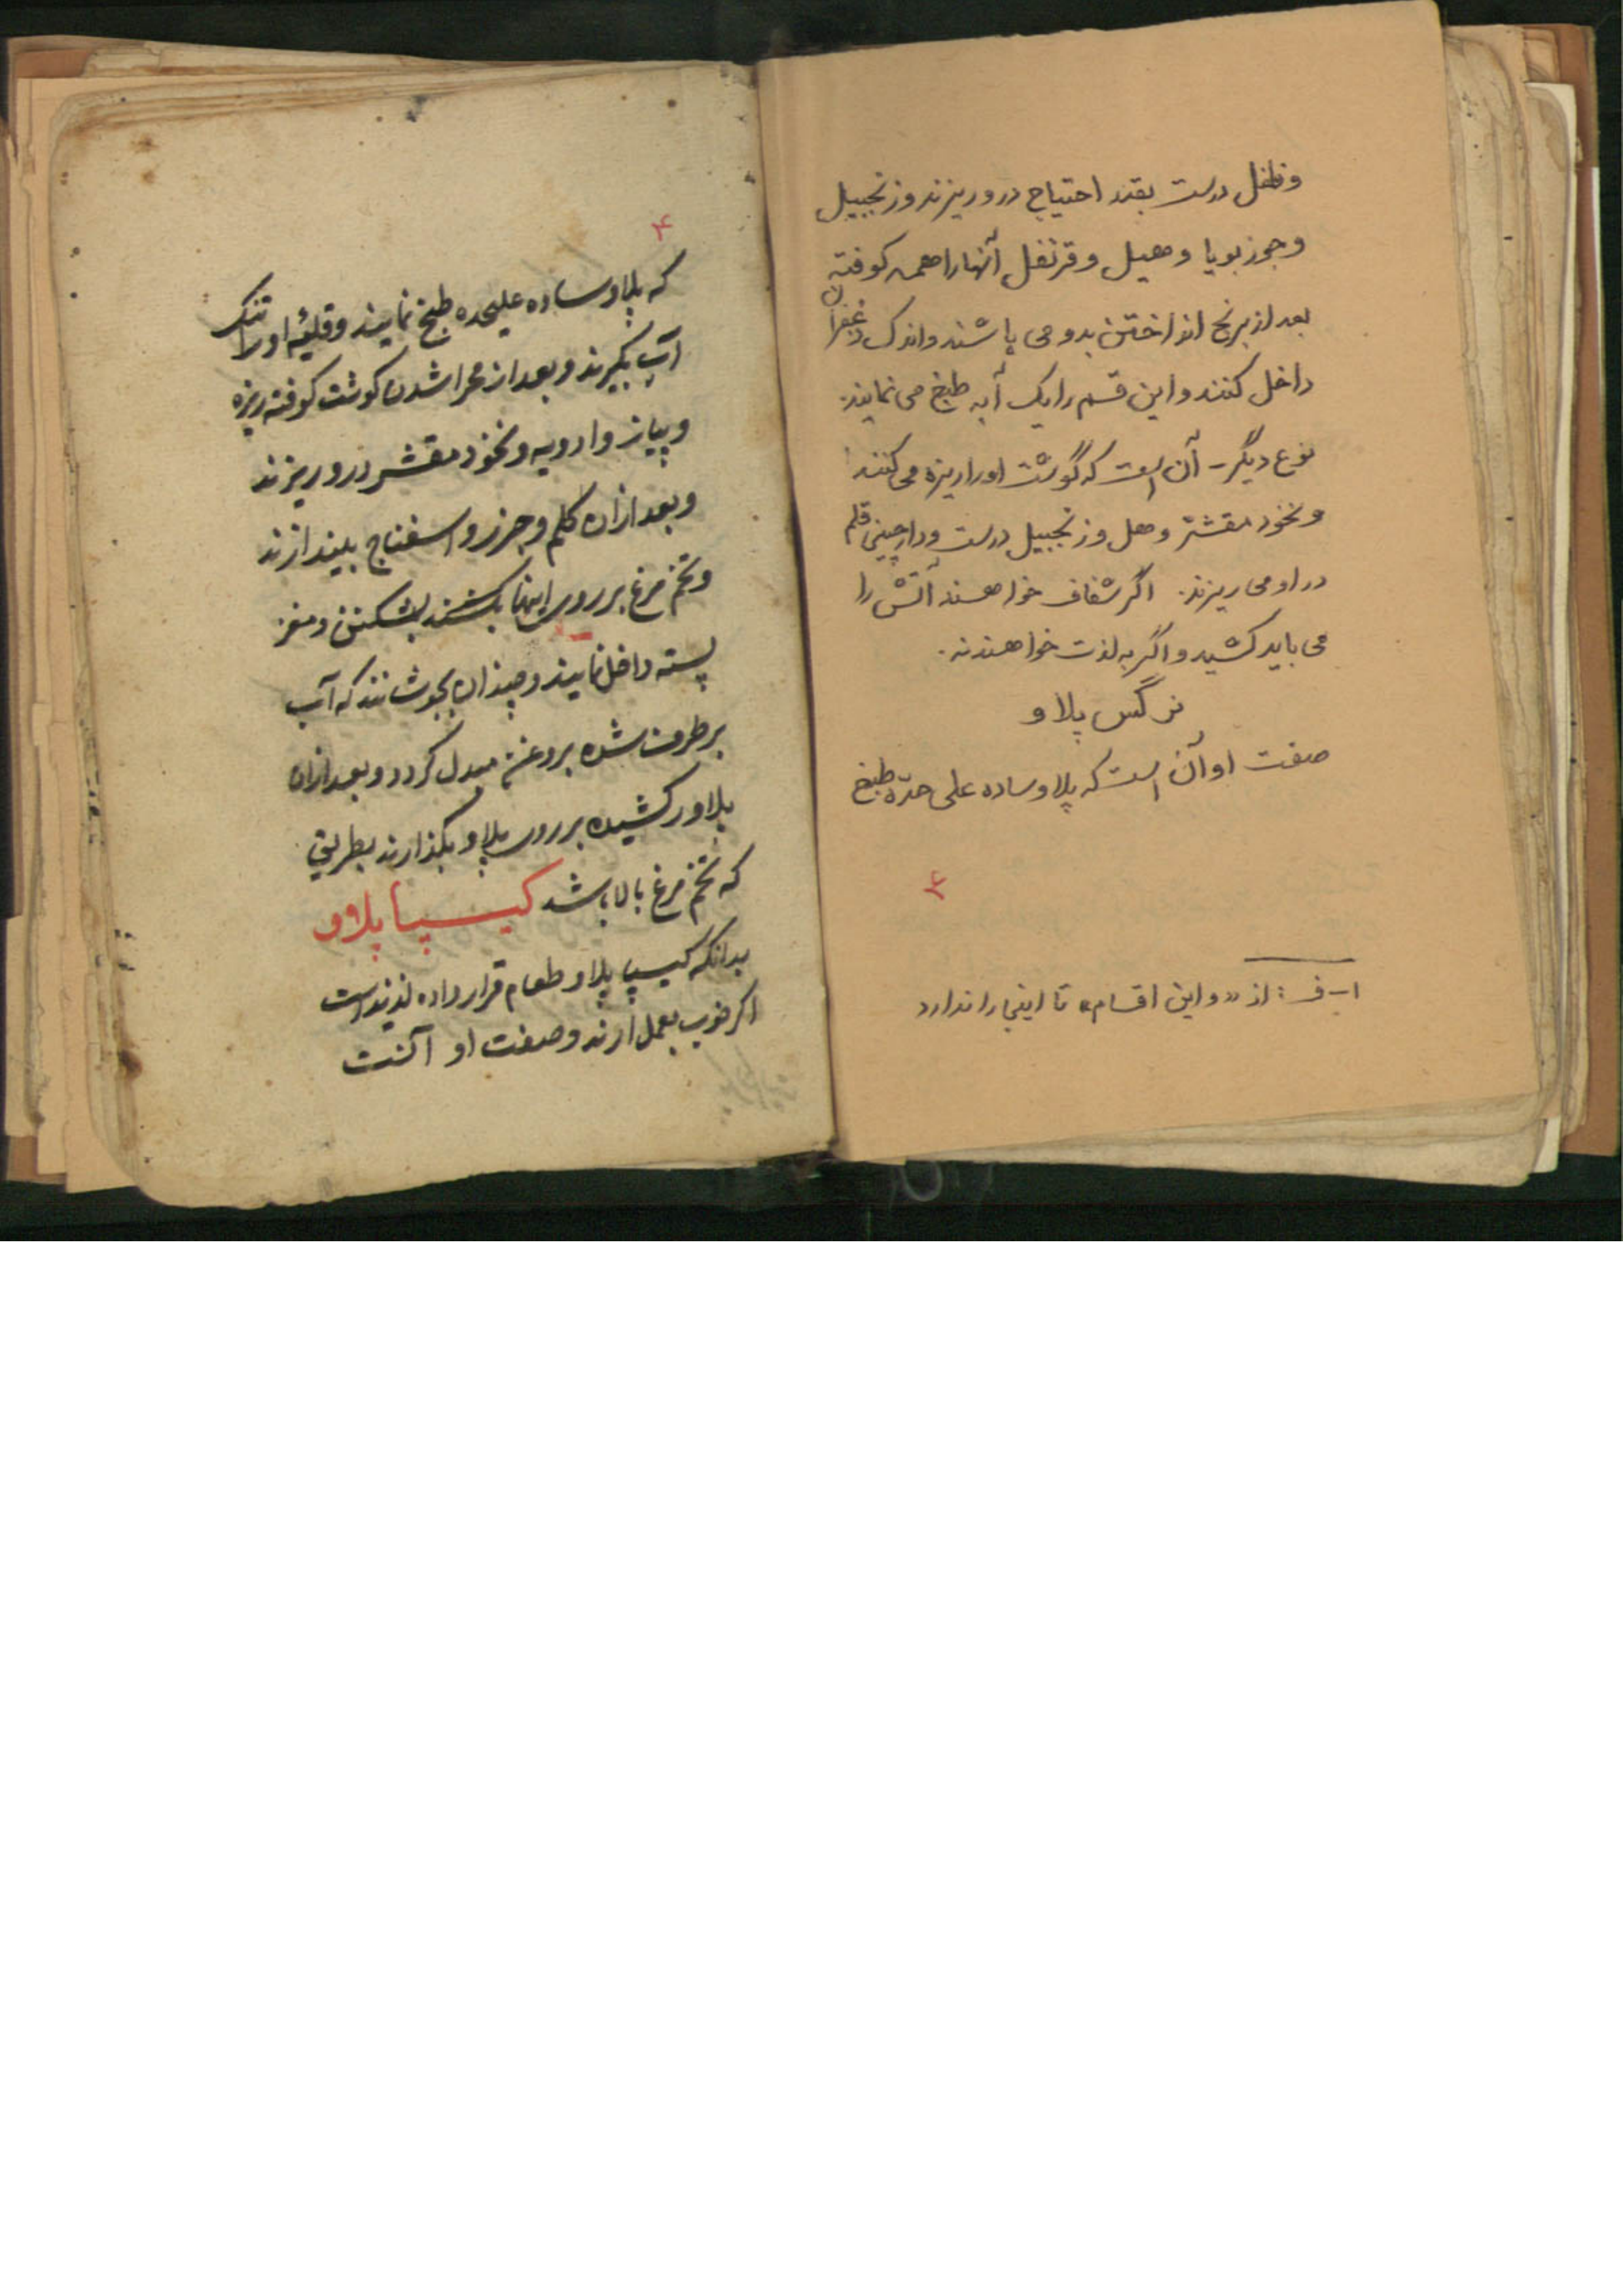 وفلفل درست بقدر احتیاج درو ریزند وزنجبیل
وجوزبویا وهیل وقرنفل آنهارا همه کوفته
بعد از برنج انداختن بدو می پاشند واندک زعفران
داخل کنند و این قسم را یک آبه طبخ می نمایند.
نوع دیگر - آن است که گوشت اورا ریزه می کنند
ونخود مقشّر وهل وزنجبیل درست ودارچینی قلم
در او می ریزند. اگر شفاف خواهند آتش را
می باید کشید و اگر به لذت خواهند نه.
نرگس پلاو
صفت او آن است که پلاو ساده علی حدّه طبخ
۴
۱- ف: از «و این اقسام» تا اینجا را ندارد
۴
که پلاو ساده علیحده طبخ نمایند و قلیهٔ او را تنک
آب بگیرند و بعد از مجرا شدن کوشت کوفته ریزه
و پیاز و ادویه و نخود مقشر درو ریزند
و بعد ازان کلم و جزر و اسفناج بیندازند
و تخم مرغ بر روی اینها بشکنند و مغز
پسته داخل نمایند و چندان بجوشانند که آب
بر طرف شده بروغن مبدل کردد و بعد ازان
پلاو را کشیده بر روی پلاو بکذارند بطریقی
که تخم مرغ بالا باشد کیسپا پلاو
بدانکه کیسپا پلاو طعام قرار داده لذیذ است
اکر خوب بعمل ارند و صفت او آنست